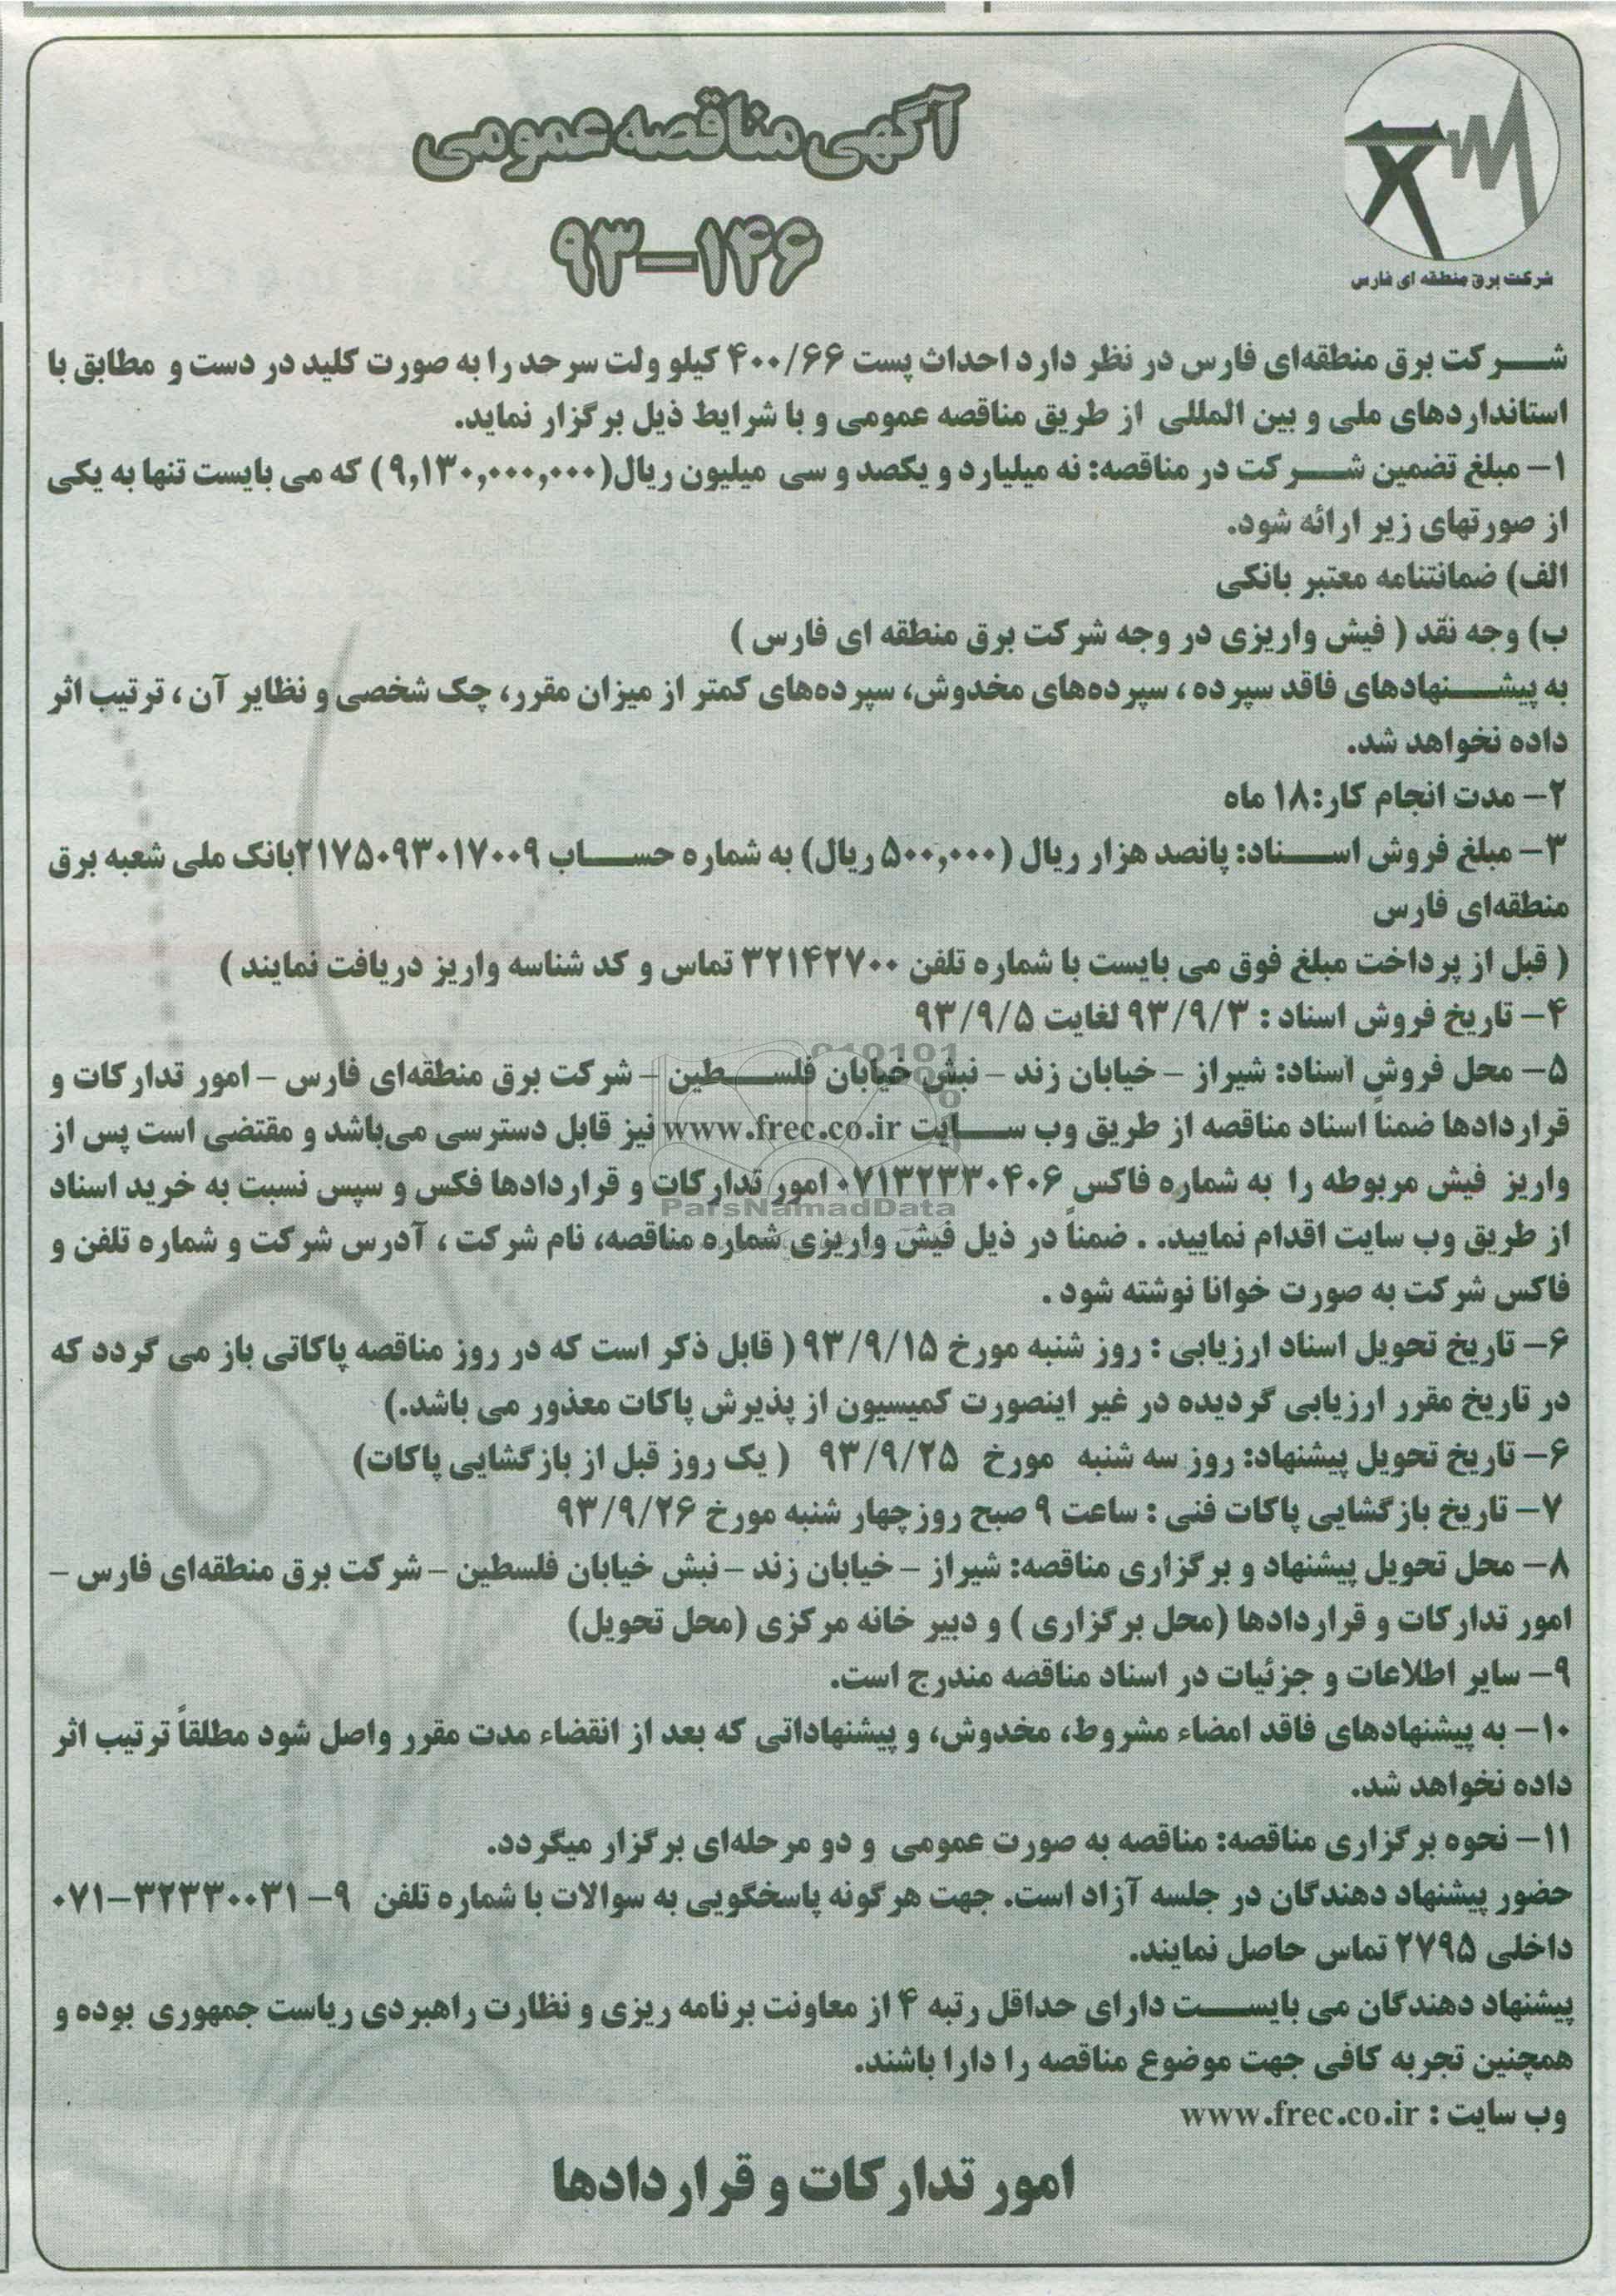 آگهی مناقصه عمومی
۹۳-۱۴۶
شرکت برق منطقه ای فارس
شرکت برق منطقه‌ای فارس در نظر دارد احداث پست ۴۰۰/۶۶ کیلو ولت سرحد را به صورت کلید در دست و مطابق با
استانداردهای ملی و بین المللی از طریق مناقصه عمومی و با شرایط ذیل برگزار نماید.
۱- مبلغ تضمین شرکت در مناقصه: نه میلیارد و یکصد و سی میلیون ریال(۹,۱۳۰,۰۰۰,۰۰۰) که می بایست تنها به یکی
از صورتهای زیر ارائه شود.
الف) ضمانتنامه معتبر بانکی
ب) وجه نقد ( فیش واریزی در وجه شرکت برق منطقه ای فارس )
به پیشنهادهای فاقد سپرده ، سپرده‌های مخدوش، سپرده‌های کمتر از میزان مقرر، چک شخصی و نظایر آن ، ترتیب اثر
داده نخواهد شد.
۲- مدت انجام کار:۱۸ ماه
۳- مبلغ فروش اسناد: پانصد هزار ریال (۵۰۰,۰۰۰ ریال) به شماره حساب ۲۱۷۵۰۹۳۰۱۷۰۰۹بانک ملی شعبه برق
منطقه‌ای فارس
( قبل از پرداخت مبلغ فوق می بایست با شماره تلفن ۳۲۱۴۲۷۰۰ تماس و کد شناسه واریز دریافت نمایند )
۴- تاریخ فروش اسناد : ۹۳/۹/۳ لغایت ۹۳/۹/۵
۵- محل فروش اسناد: شیراز - خیابان زند - نبش خیابان فلسطین - شرکت برق منطقه‌ای فارس - امور تدارکات و
قراردادها ضمناً اسناد مناقصه از طریق وب سایت www.frec.co.ir نیز قابل دسترسی می‌باشد و مقتضی است پس از
واریز فیش مربوطه را به شماره فاکس ۰۷۱۳۲۳۳۰۴۰۶ امور تدارکات و قراردادها فکس و سپس نسبت به خرید اسناد
ParsNamadData
از طریق وب سایت اقدام نمایید. . ضمناً در ذیل فیش واریزی شماره مناقصه، نام شرکت ، آدرس شرکت و شماره تلفن و
فاکس شرکت به صورت خوانا نوشته شود .
۶- تاریخ تحویل اسناد ارزیابی : روز شنبه مورخ ۹۳/۹/۱۵ ( قابل ذکر است که در روز مناقصه پاکاتی باز می گردد که
در تاریخ مقرر ارزیابی گردیده در غیر اینصورت کمیسیون از پذیرش پاکات معذور می باشد.)
۶- تاریخ تحویل پیشنهاد: روز سه شنبه مورخ ۹۳/۹/۲۵ ( یک روز قبل از بازگشایی پاکات)
۷- تاریخ بازگشایی پاکات فنی : ساعت ۹ صبح روز چهار شنبه مورخ ۹۳/۹/۲۶
۸- محل تحویل پیشنهاد و برگزاری مناقصه: شیراز - خیابان زند - نبش خیابان فلسطین - شرکت برق منطقه‌ای فارس -
امور تدارکات و قراردادها (محل برگزاری ) و دبیر خانه مرکزی (محل تحویل)
۹- سایر اطلاعات و جزئیات در اسناد مناقصه مندرج است.
۱۰- به پیشنهادهای فاقد امضاء مشروط، مخدوش، و پیشنهاداتی که بعد از انقضاء مدت مقرر واصل شود مطلقاً ترتیب اثر
داده نخواهد شد.
۱۱- نحوه برگزاری مناقصه: مناقصه به صورت عمومی و دو مرحله‌ای برگزار میگردد.
حضور پیشنهاد دهندگان در جلسه آزاد است. جهت هرگونه پاسخگویی به سوالات با شماره تلفن ۹-۰۷۱-۳۲۳۳۰۰۳۱
داخلی ۲۷۹۵ تماس حاصل نمایند.
پیشنهاد دهندگان می بایست دارای حداقل رتبه ۴ از معاونت برنامه ریزی و نظارت راهبردی ریاست جمهوری بوده و
همچنین تجربه کافی جهت موضوع مناقصه را دارا باشند.
وب سایت : www.frec.co.ir
امور تدارکات و قراردادها